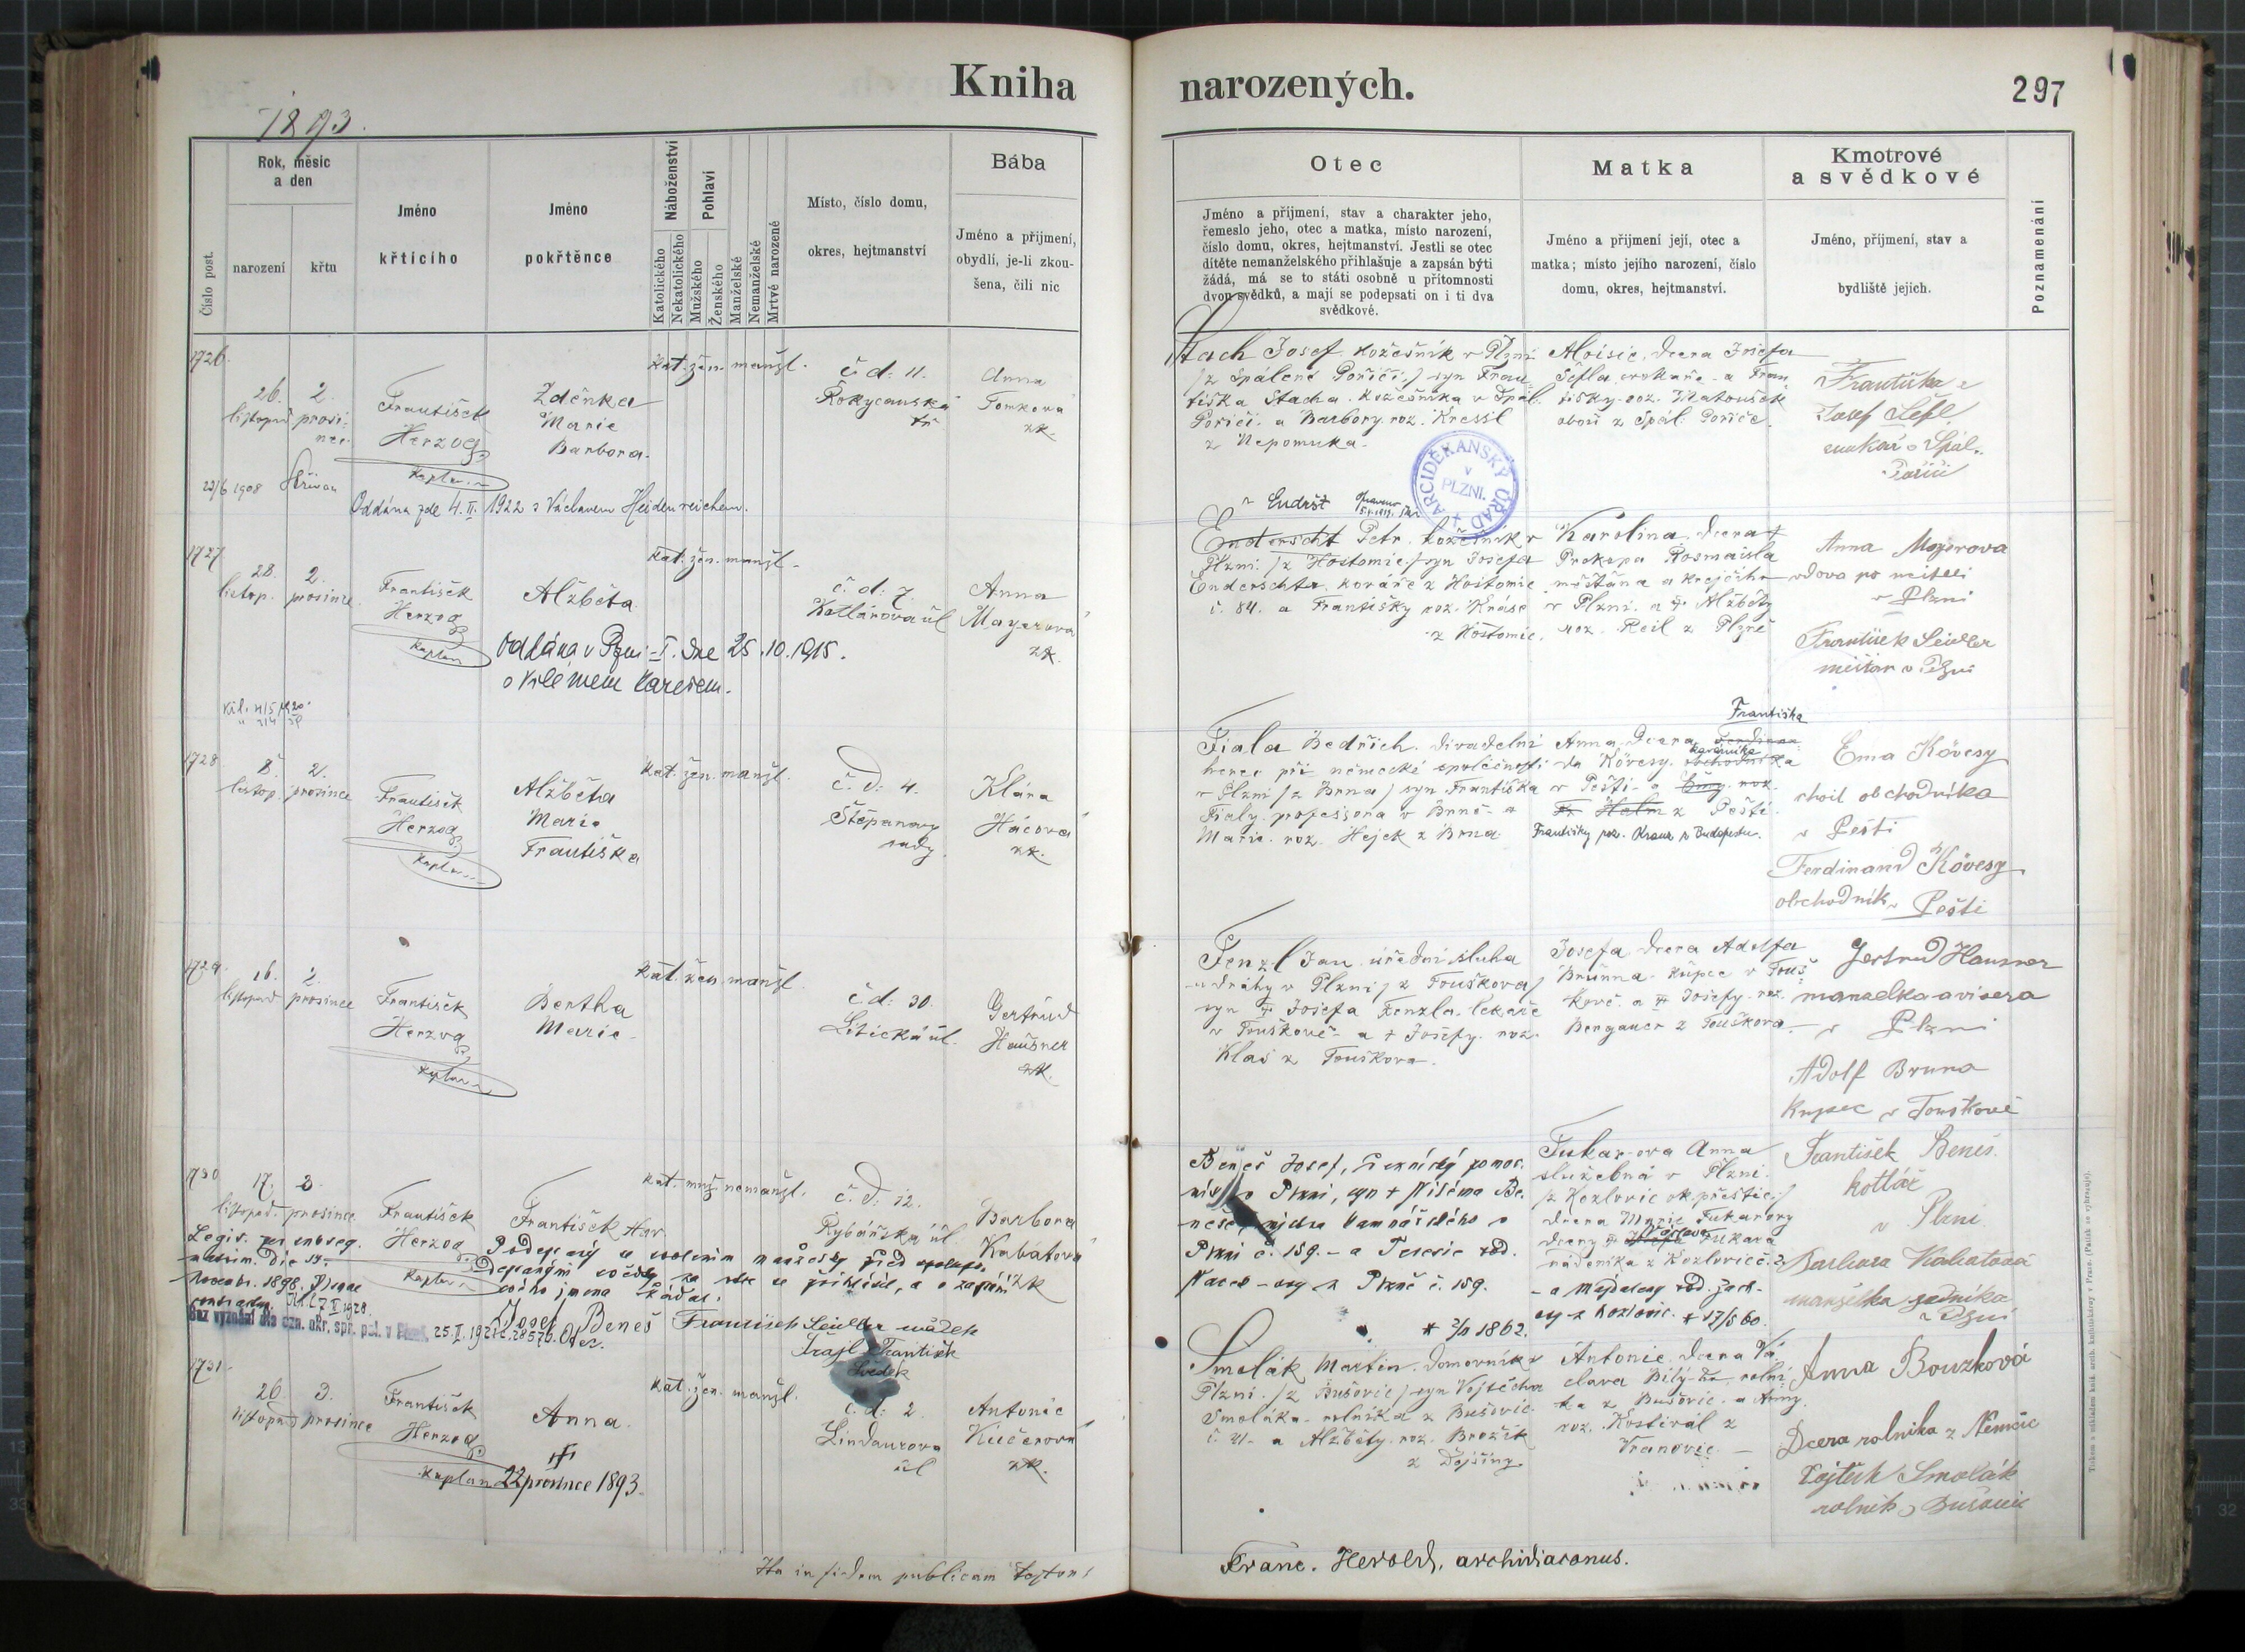 Kniha
narozených.
297
1893.
Rok, měsíc
a den
narození
křtu
Číslo post.
Jméno
křticího
Jméno
pokřtěnce
Náboženství
Katolického
Nekatolického
Pohlaví
Mužského
Ženského
Manželské
Nemanželské
Mrtvě narozené
Místo, číslo domu,
okres, hejtmanství
Bába
Jméno a příjmení,
obydlí, je-li zkou-
šena, čili nic
Otec
Jméno a příjmení, stav a charakter jeho,
řemeslo jeho, otec a matka, místo narození,
číslo domu, okres, hejtmanství. Jestli se otec
dítěte nemanželského přihlašuje a zapsán býti
žádá, má se to státi osobně u přítomnosti
dvou svědků, a mají se podepsati on i ti dva
svědkové.
Matka
Jméno a příjmení její, otec a
matka; místo jejího narození, číslo
domu, okres, hejtmanství.
Kmotrové
a svědkové
Jméno, příjmení, stav a
bydliště jejich.
Poznamenání
1726.
26. listopad
2. prosinec
František
Herzog
kaplan
Zdeňka
Marie
Barbora.
kat. žen. manžl.
č. d: 11.
Rokycanská
tř.
Anna
Tomkova
zk.
23/6 1908
Oddána zde 4. II. 1922 s Václavem Heidenreichem.
Stach Josef kožešník v Plzni
/z Spálené Poříčí/ syn Fran-
tiška Stacha kožešníka v Spál.
Poříčí a Barbory roz. Kressl
z Nepomuka.
Aloisie, dcera Josefa
Šefla a Fran-
tišky roz. Matoušek
oboú z Spál. Poříče.
Františka a
Josef Šefl
Spál.
Poříčí
ARCIDĚKANSKÝ ÚŘAD
v
PLZNI.
1727
28. listop.
2. prosince
František
Herzog
kaplan
Alžběta
kat. žen. manžl.
č. d: 7.
Kotlářova ul
Anna
Mayerova
zk.
Oddána v Plzni-I. dne 25.10.1915.
s Vilémem Karešem.
Endršt
Enderscht Petr. kožešník v
Plzni /z Hostomic/ syn Josefa
Enderschta, kováře z Hostomic
č. 84. a Františky roz. Kráse
z Hostomic.
Karolina, dcera †
Prokopa Rosmaisla
měšťana a krejčího
v Plzni a † Alžběty
roz. Reil z Plzně
Anna Mayerova
vdova po
v Plzni
František Seidler
měšťan v Plzni
1728
8. listop.
2. prosince
František
Herzog
kaplan
Alžběta
Marie
Františka
kat. žen. manžl.
č. d: 4.
Štěpánovy
sady
Klára
Hácova
zk.
Fiala Bedřich. divadelní
herec při německé společnosti
v Plzni /z Brna/ syn Františka
Fialy professora v Brně a
Marie roz. Hejek z Brna
Františka
Anna Dcera Ferdinan-
da Kövesy. obchodníka
v Pešti a Emy roz.
Helm z Pešti.
Františky roz. Kraus z Budapestu.
Ema Kövesy
choť obchodníka
v Pešti
Ferdinand Kövesy
obchodník v Pešti
1729.
16. listopad
2. prosince
František
Herzog
kaplan
Bertha
Marie
kat. žen. manžl.
č. d: 30.
Litická ul.
Gertrud
Hausner
zk.
Fenzl Jan úřední sluha
u dráhy v Plzni /z Touškova/
syn † Josefa Fenzla lékaře
v Touškově a † Josefy roz.
Klas z Touškova.
Josefa dcera Adolfa
Brunna kupce v Touš-
kově a † Josefy roz.
Bergauer z Touškova
Gertrud Hausner
manželka
v Plzni
Adolf Bruna
Kupec v Touškově
1730
17. listopad.
3. prosince
František
Herzog
kaplan
František Har.
kat. muž. nemanžl.
č. d: 12.
Rybářská ul.
Barbora
Kabátova
zk
Legit. per subseq.
matrim. die 19.
Novembr. 1898.
Podepsaný se svolením manželky před spolupo-
depsanými svědky za otce se přihlásil, a o zapsání
svého jména žádal.
Josef Beneš
Otec.
František Seidler svědek
Trajl František
Svědek
Bez vyznání dle ozn. okr. spr. pol. v Plzni, 25.I.1921 č. 28576.
Beneš Josef, řeznický pomoc-
ník v Plzni, syn † Viléma Be-
neše v
Plzni č. 159. – a Terezie rod.
z Plzně č. 159.
* 2/11 1862.
Fukar-ova Anna
služebná v Plzni
/z Kozlovic ok. přeštic./
dcera Marie Fukarovy
dcery † Fukara
nádeníka z Kozlovic č. 2
- a Majdaleny rod. Zach-
ovy z Kozlovic. * 17/5 60.
František Beneš.
kotlář
v Plzni
Barbara Kabatová
manželka zedníka
v Plzni
1731.
26. listopad
3. prosince
František
Herzog
kaplan
Anna.
22 prosince 1893.
kat. žen. manžl.
č. d: 2.
Lindaurova
ul
Antonie
Kučerova
zk.
Smolák Martin. domovník v
Plzni. /z Bušovic/ syn Vojtěcha
Smoláka rolníka z Bušovic
č. 21. a Alžběty roz. Brožík
z Dejšiny
Antonie. Dcera Vá-
clava Bílý-ho rolní-
ka z Bušovic. a Anny.
roz. Kostival z
Vranovic.
Anna Bouzková
Dcera rolníka z Němčic
Vojtěch Smolák
rolník z Bušovic
Ita in fidem publicam testor:
Franc. Herold, archidiaconus.